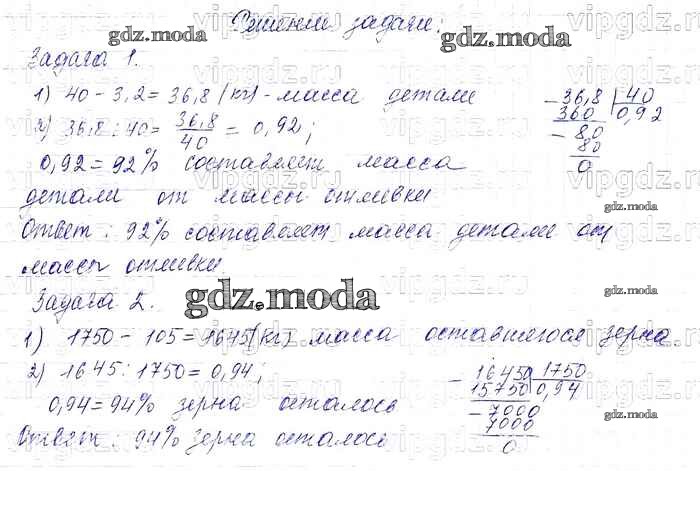 Решении задачи:
Задача 1.
1) 40 - 3,2 = 36,8 (кг) - масса детали
2) 36,8 : 40 = 36,8/40 = 0,92;
0,92 = 92% составляет масса
детали от массы отливки
Ответ: 92% составляет масса детали от
массы отливки.
- 36,8 | 40
360 | 0,92
- 8,0
80
0
Задача 2.
1) 1750 - 105 = 1645 (кг) масса оставшегося зерна.
2) 1645 : 1750 = 0,94;
0,94 = 94% зерна осталось
Ответ: 94% зерна осталось
- 16450 | 1750
15750 | 0,94
- 7000
7000
0
gdz.moda
gdz.moda
gdz.moda
gdz.moda
gdz.moda
gdz.moda
gdz.moda
gdz.moda
vipgdz.ru